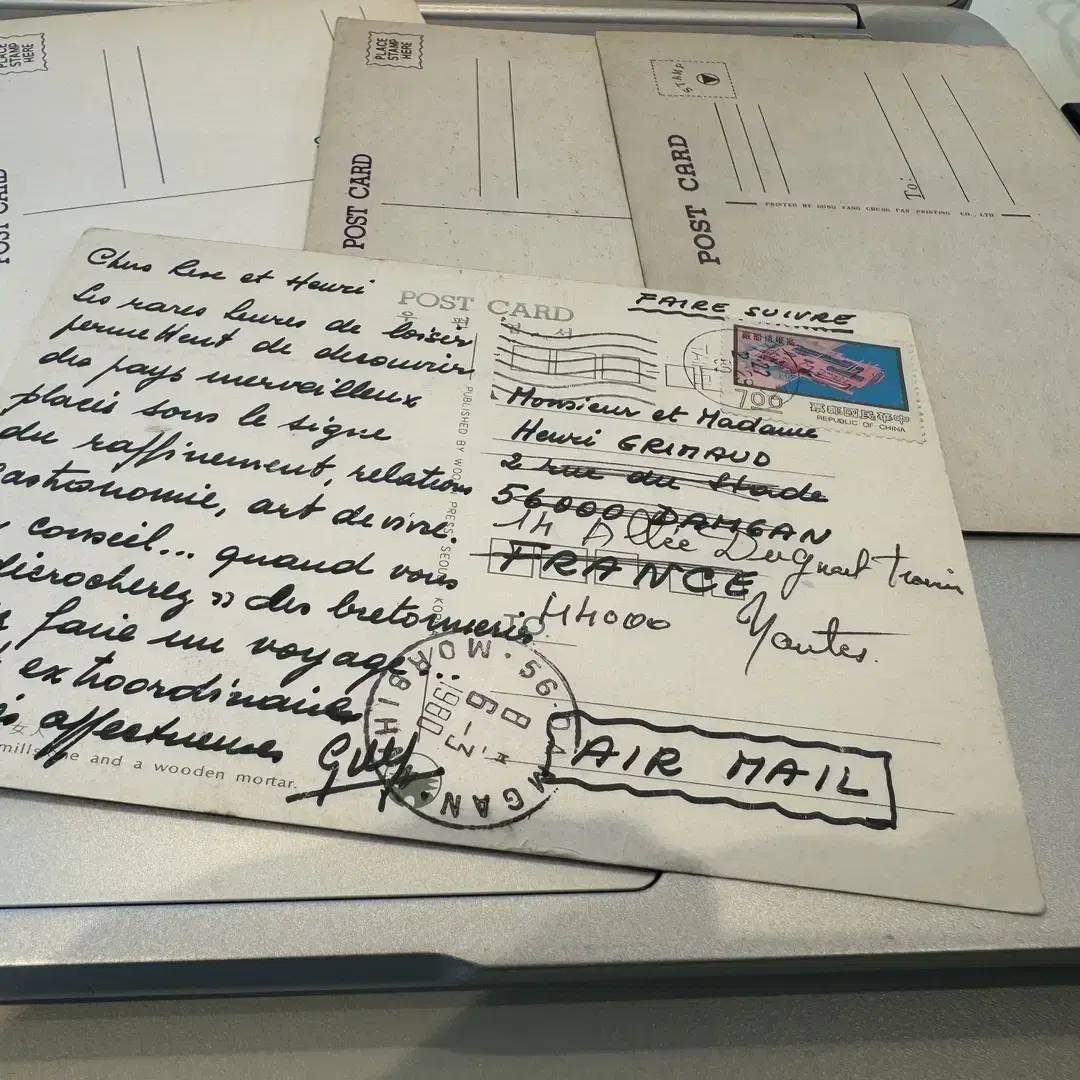 PLACE
STAMP
HERE
POST CARD
PLACE
STAMP
HERE
POST CARD
STAMP
POST CARD
To:
PRINTED BY DONG FANG CHUNG PAN PRINTING CO., LTD
POST CARD
FAIRE SUIVRE
700
中華民國郵票
REPUBLIC OF CHINA
et Henri
Les rares heures de loisir
permettent de decouvrir
des pays merveilleux
placés sous le signe
du raffinement, relations
astronomie, art de vivre.
conseil... quand vous
décrocherez » des bretonneries
faire un voyage...
extraordinaire
affectueuses
Monsieur et Madame
Henri GRIMAUD
2 rue du Stade
56000 DAMGAN
14 Allée Duguait trouin
FRANCE
44000
Nantes.
TO
PUBLISHED BY PRESS SEOUL KOR
56 DAMGAN
MORBIHAN
8 H
6-3
1980
AIR MAIL
女人
mills and a wooden mortar.